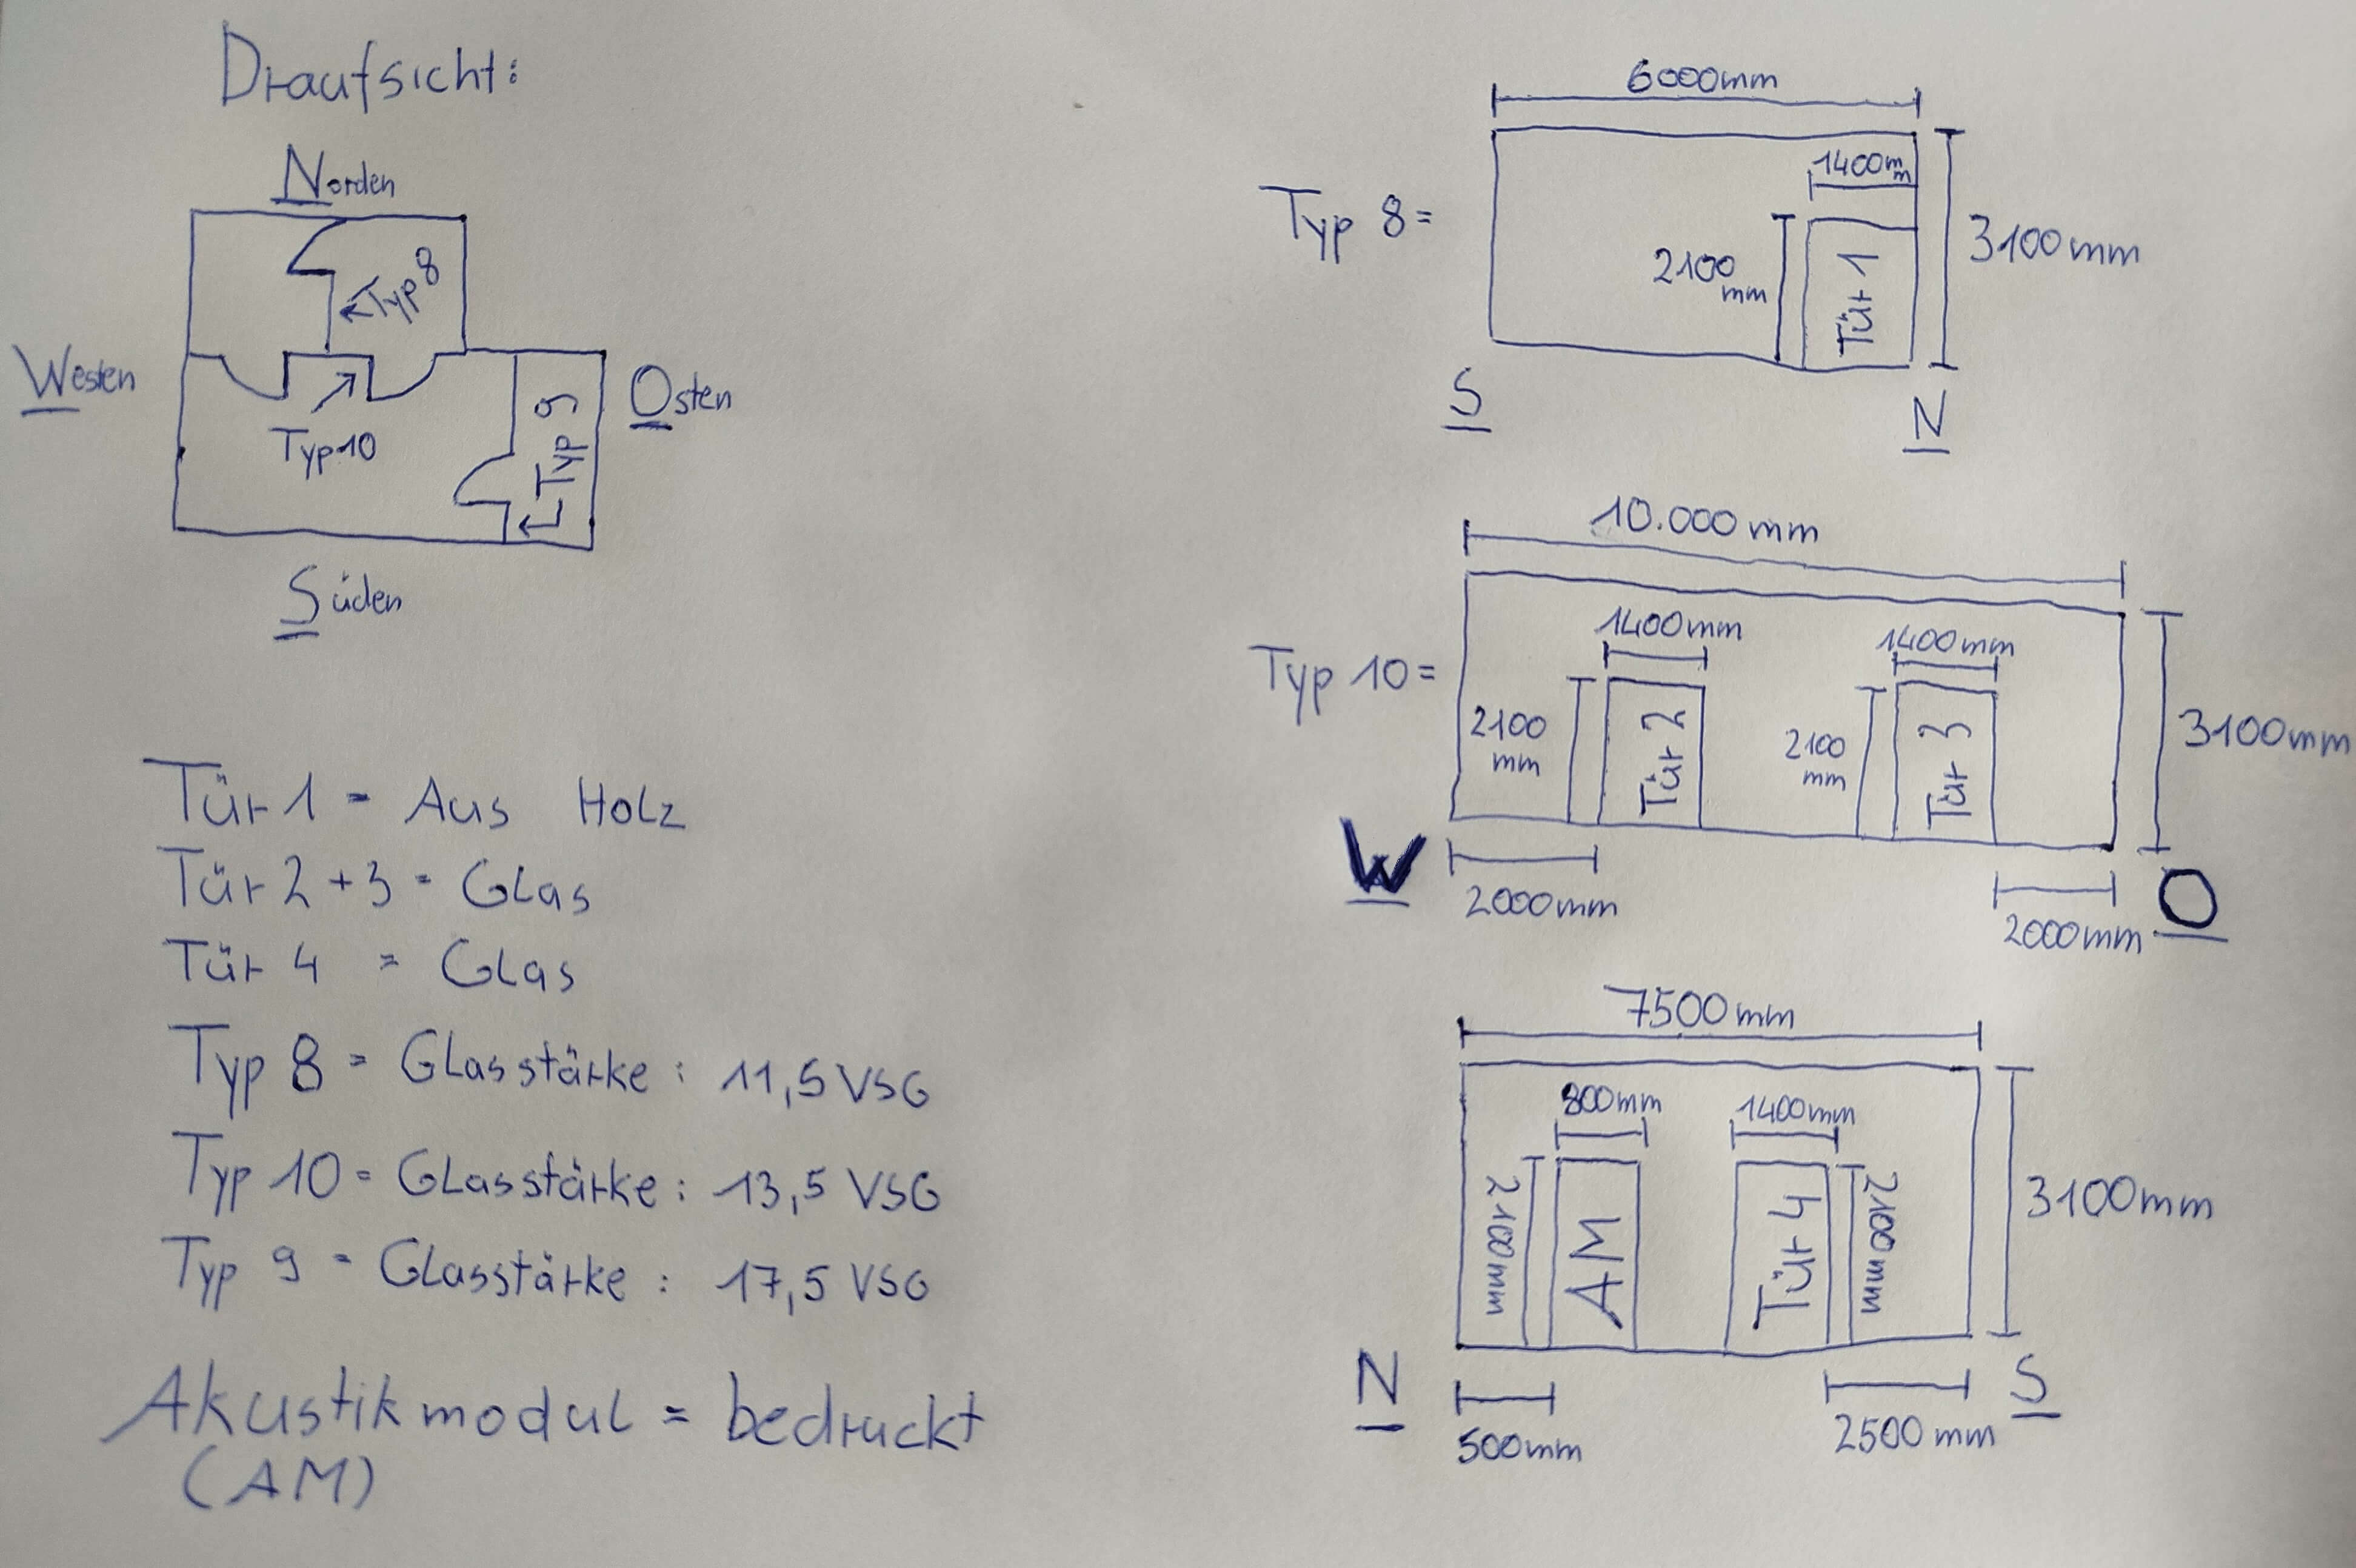 Draufsicht:
Norden
Westen
Osten
Süden
←Typ 8
Typ 10
←Typ 9
Tür 1 = Aus Holz
Tür 2 + 3 = Glas
Tür 4 = Glas
Typ 8 = Glasstärke: 11,5 VSG
Typ 10 = Glasstärke: 13,5 VSG
Typ 9 = Glasstärke: 17,5 VSG
Akustikmodul = bedruckt
(AM)
Typ 8 =
6000mm
1400mm
2100
mm
Tür 1
3100mm
S
N
Typ 10 =
10.000 mm
1400mm
1400mm
2100
mm
Tür 2
2100
mm
Tür 3
3100mm
W
2000mm
2000mm
O
7500mm
800mm
1400mm
2100mm
AM
Tür 4
2100mm
3100mm
N
500mm
2500mm
S